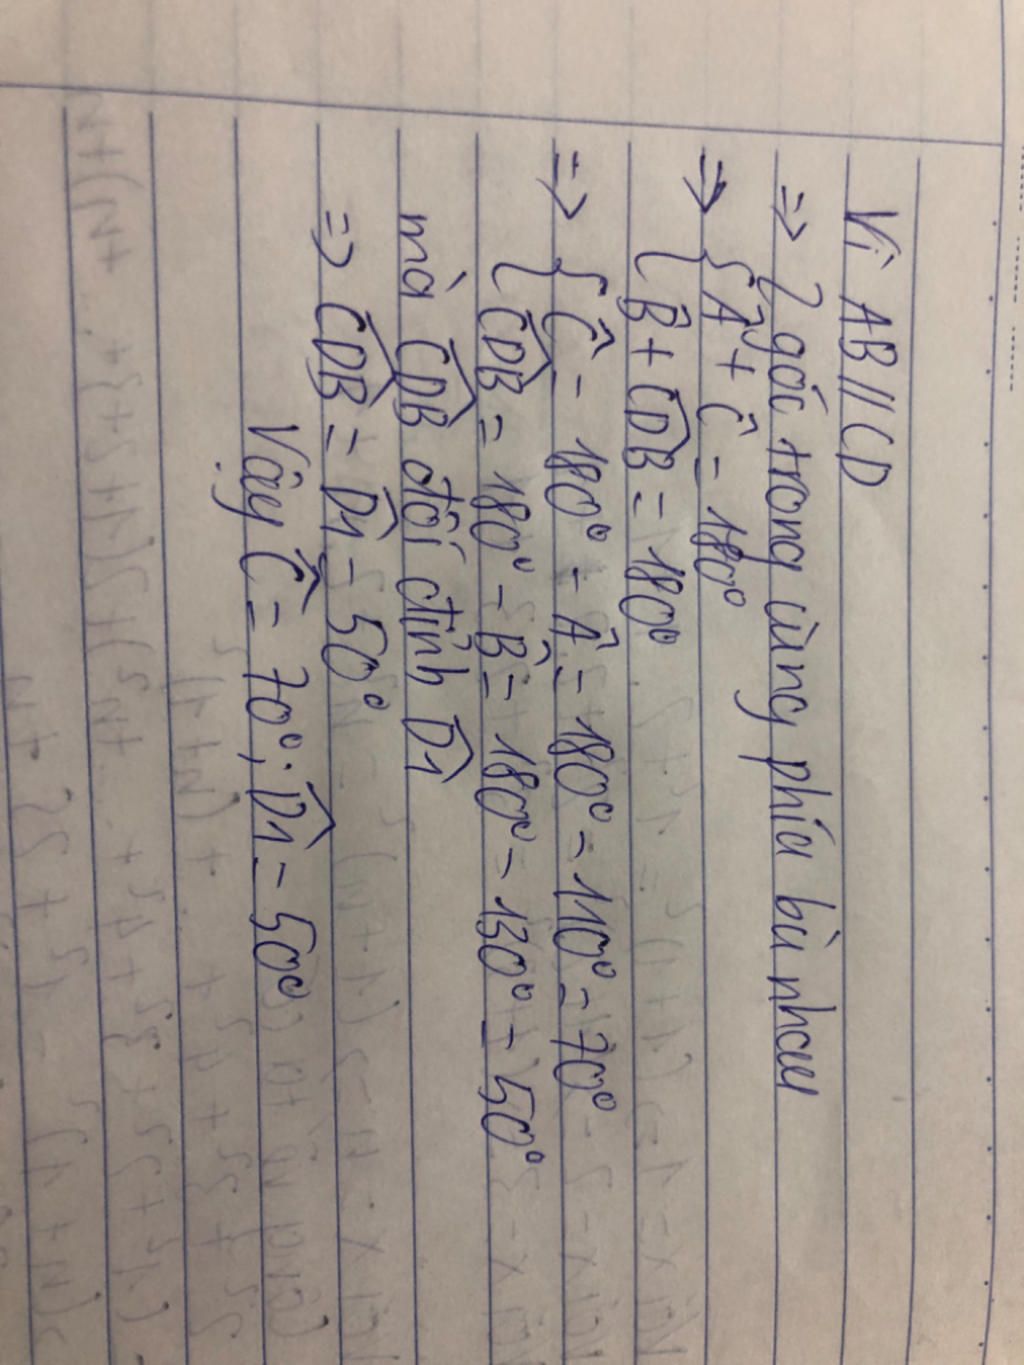 Vì AB // CD
=> 2 góc trong cùng phía bù nhau
=> { Â + Ĉ = 180°
{ B̂ + CDB̂ = 180°
=> { Ĉ = 180° - Â = 180° - 110° = 70°
{ CDB̂ = 180° - B̂ = 180° - 130° = 50°
mà CDB̂ đối đỉnh D̂1
=> CDB̂ = D̂1 = 50°
Vậy Ĉ = 70°; D̂1 = 50°